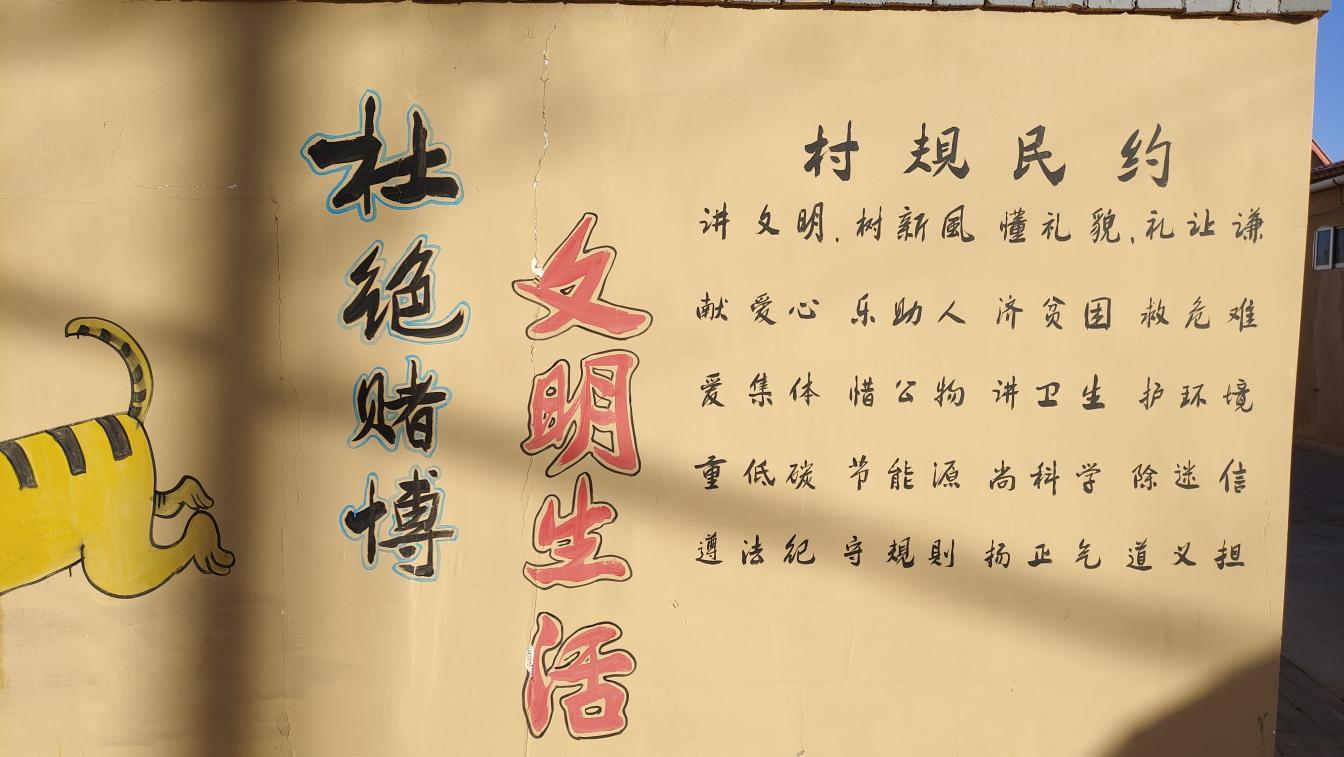 杜绝赌博
文明生活
村规民约
讲文明,树新風 懂礼貌,礼让谦
献爱心 乐助人 济贫困 救危难
爱集体 惜公物 讲卫生 护环境
重低碳 节能源 尚科学 除迷信
遵法纪 守規則 扬正气 道义担